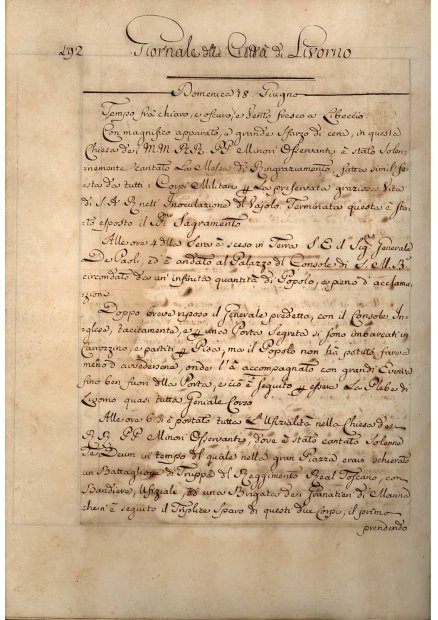 192 Giornale della Città di Livorno
Domenica 18 Giugno
Tempo frà chiaro, e oscuro, e Vento fresco a Libeccio
Con magnifico apparato, e grande sfarzo di cera, in questa
Chiesa de i MM. RR. PP. Minori Osservanti è stato Solen,
nemente cantato La Messa di Ringraziamento, fatta simil fe,
sta da tutti i Corpi Militari la preservata graziosa Vita
di S. A. R. nell Inoculazione di Vajolo. Terminata questa è sta,
to esposto il Sagramento
Alle ore 4 della Sera è sceso in Terra S. E. il Sig. Generale
De Paoli, ed è andato al Palazzo del Console di S. M. B.
circondato da un' infinita quantità di Popolo, e pieno d'acclama,
zione
Doppo breve riposo il Generale predetto, con il Console In,
glese, tacitamente, e una Porta Segreta si sono imbarcati in
Carrozzino, e partiti Pisa, ma il Popolo non hà potuto far a
meno d'avvedersene, onde l'à accompagnato con grandi Evviva
fino ben fuori della Porta, e ciò è seguito essere La Plebe di
Livorno quasi tutta Geniale Corso
Alle ore 6 si è portata tutta L'Ufizialità nella Chiesa de i
RR. PP. Minori Osservanti, dove è stato cantato Solenne
Te Deum in tempo del quale nella gran Piazza eran schierati
un Battaglione di Truppa del Reggimento Real Toscano, con
Bandiera, Ufiziali, ed una Brigata de i Granatieri di Marina
che n'è seguito il Triplice Sparo di questi due Corpi, il primo
prendendo